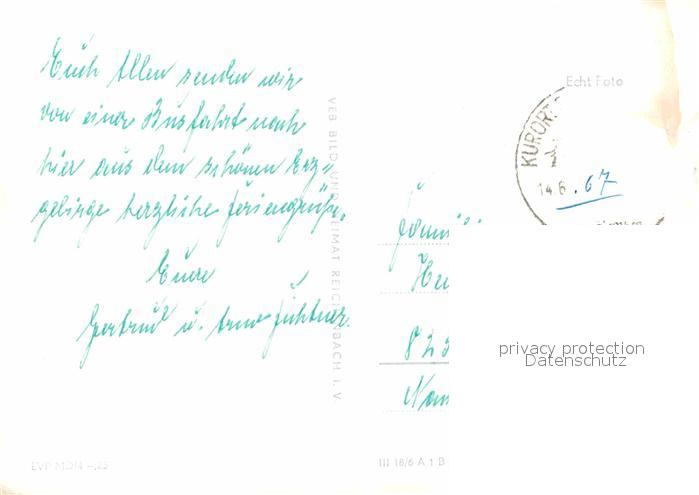 Euch Allen senden wir
von einer Busfahrt nach
hier aus dem schönen Erz=
gebirge herzliche Feriengrüße.
Eure
Gertrud u. Arno
VEB BILD UND HEIMAT REICHENBACH I. V.
EVP MDN -,25
Echt Foto
KURORT
14.6.67
Fami
82
III 18/6 A 1 B
privacy protection
Datenschutz